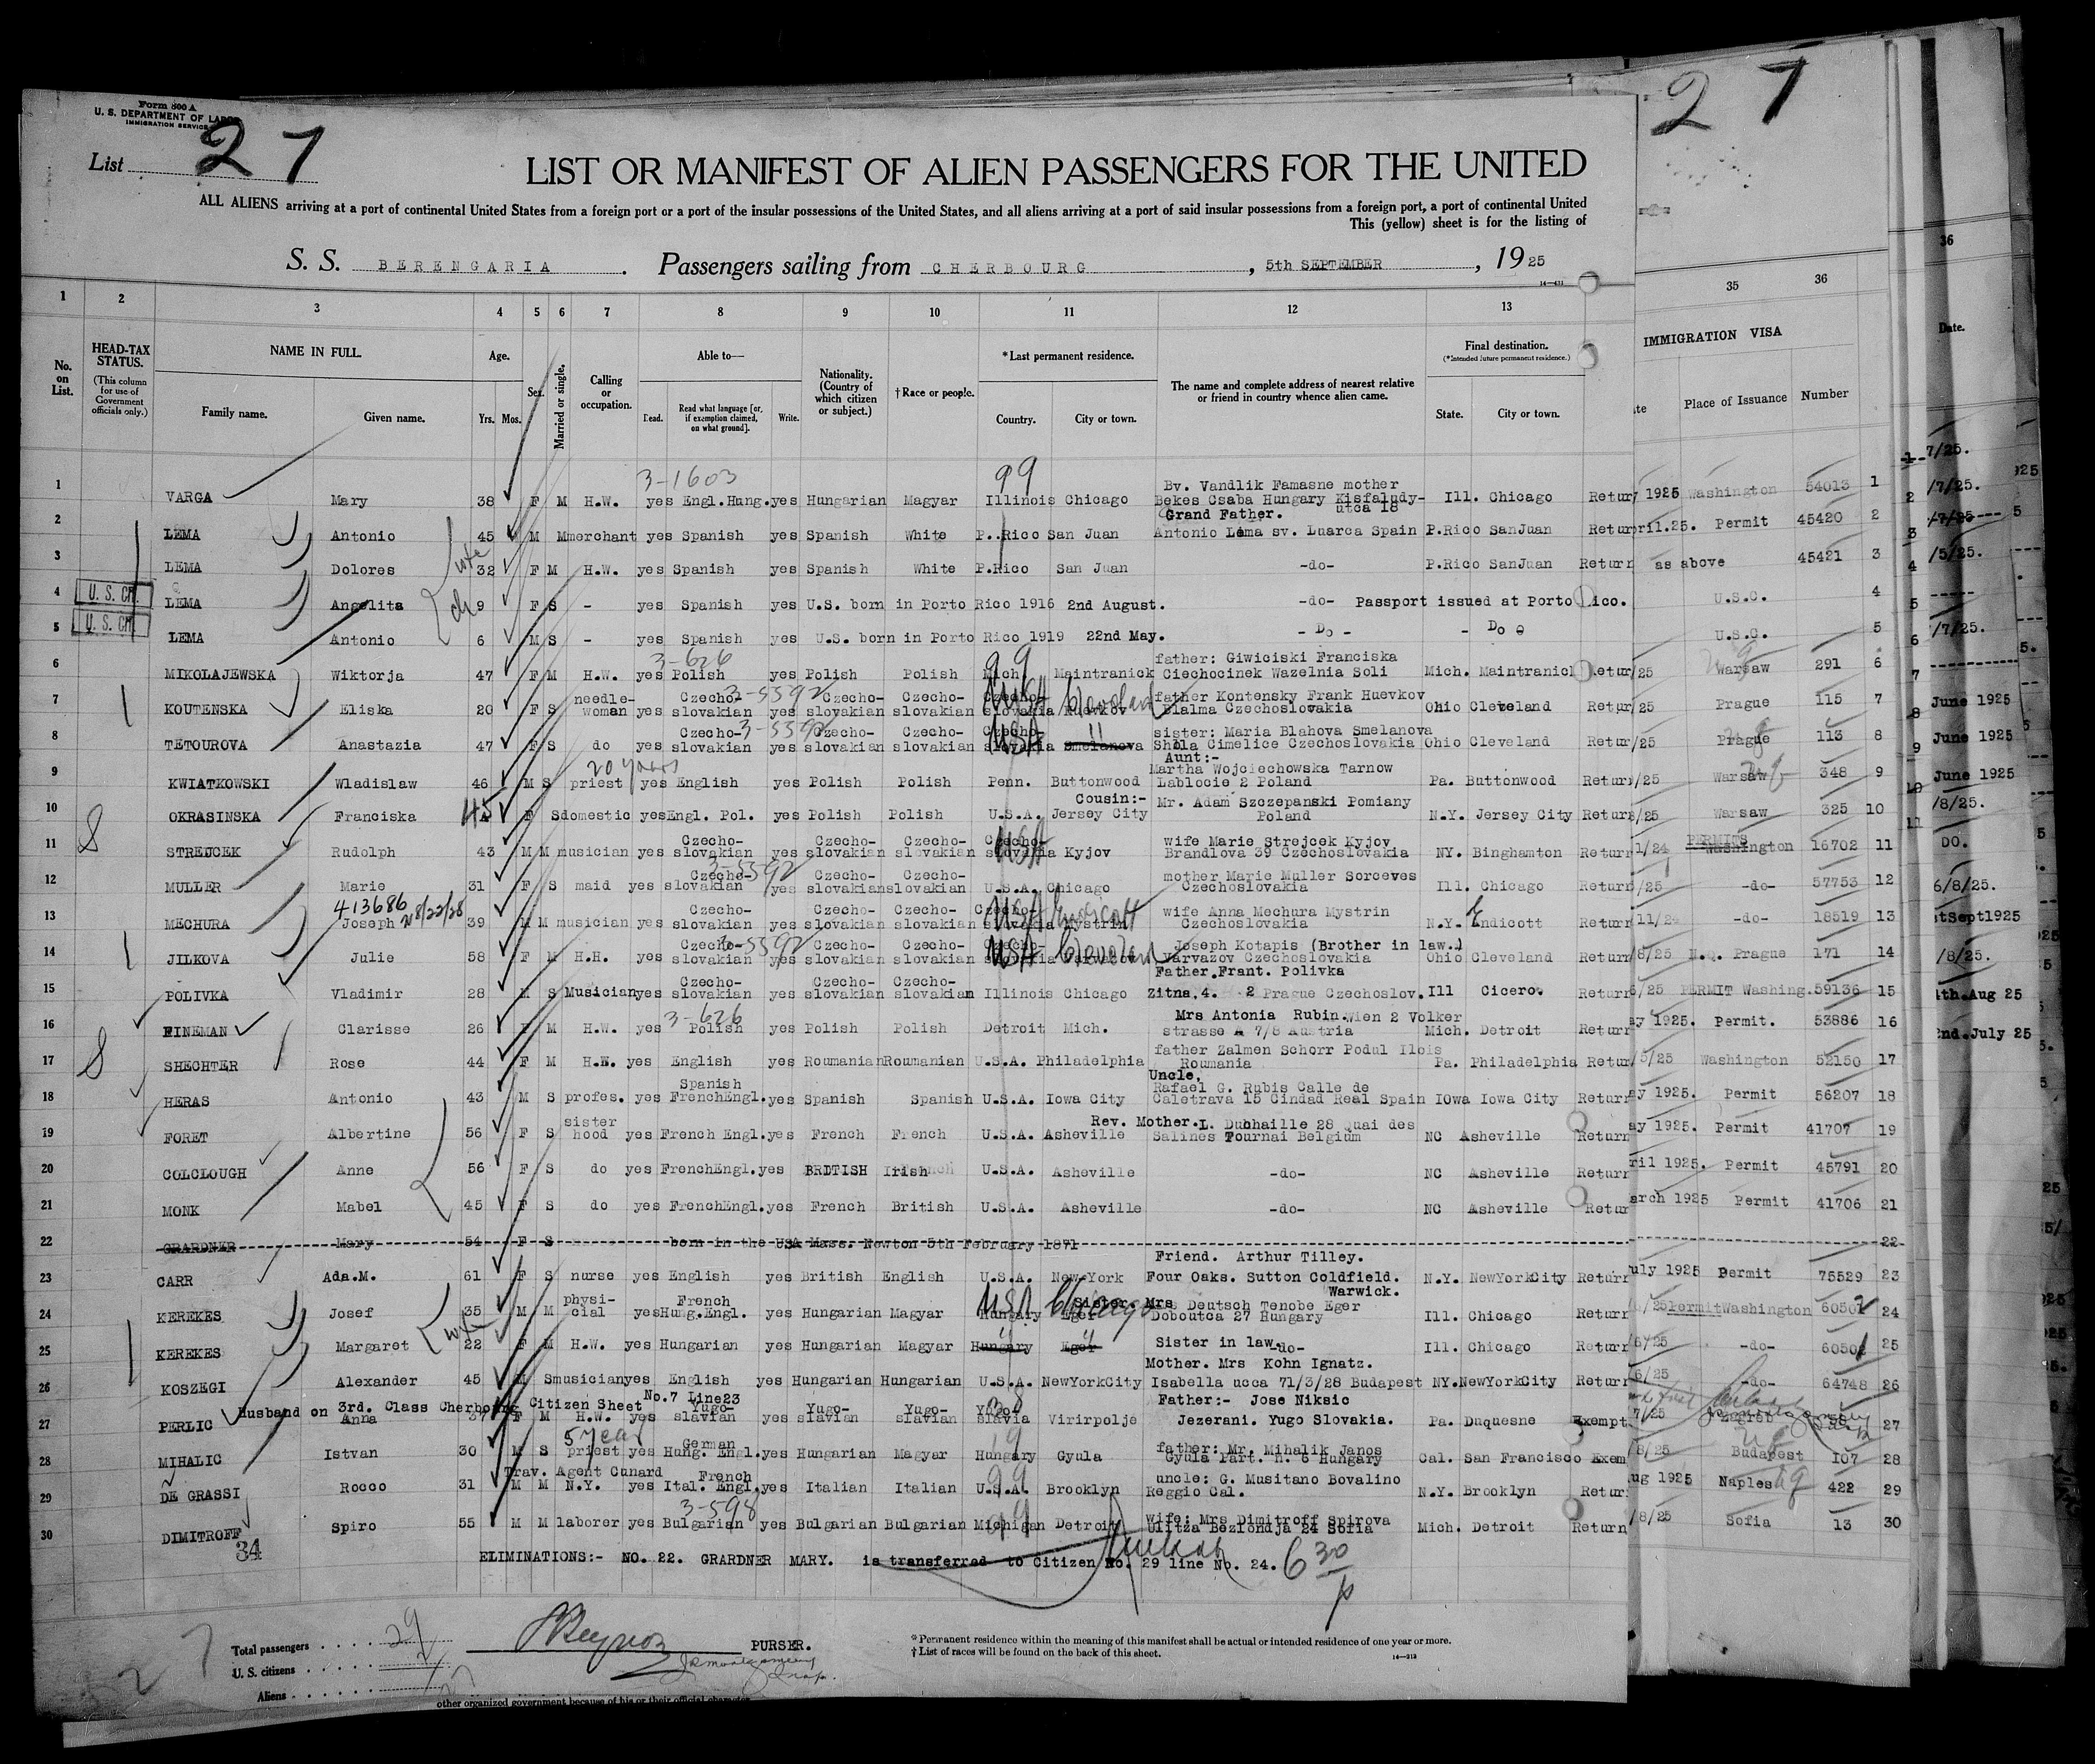 Form 500 A
U. S. DEPARTMENT OF LABOR
IMMIGRATION SERVICE
List 27
27
LIST OR MANIFEST OF ALIEN PASSENGERS FOR THE UNITED
ALL ALIENS arriving at a port of continental United States from a foreign port or a port of the insular possessions of the United States, and all aliens arriving at a port of said insular possessions from a foreign port, a port of continental United
This (yellow) sheet is for the listing of
S. S. BERENGARIA. Passengers sailing from CHERBOURG, 5th SEPTEMBER, 1925
1 2 3 4 5 6 7 8 9 10 11 12 13 35 36 36
No. on List. HEAD-TAX STATUS. (This column for use of Government officials only.) NAME IN FULL. Family name. Given name. Age. Yrs. Mos. Sex. Married or single. Calling or occupation. Able to— Read. Read what language [or, if exemption claimed, on what ground]. Write. Nationality. (Country of which citizen or subject.) †Race or people. *Last permanent residence. Country. City or town. The name and complete address of nearest relative or friend in country whence alien came. Final destination. (*Intended future permanent residence.) State. City or town. IMMIGRATION VISA Place of Issuance Number Date.
3-1603 99
Bv. Vandlik Famasne mother
1 VARGA Mary 38 F M H.W. yes Engl.Hung. yes Hungarian Magyar Illinois Chicago Bekes Csaba Hungary Kisfaludy-utca 18 Ill. Chicago Retur 1925 Washington 54013 1
Grand Father.
2 LEMA Antonio 45 M M merchant yes Spanish yes Spanish White P.Rico San Juan Antonio Lema sv. Luarca Spain P.Rico SanJuan Retur ril.25. Permit 45420 2
3 LEMA Dolores wife 32 F M H.W. yes Spanish yes Spanish White P.Rico San Juan -do- P.Rico SanJuan Return as above 45421 3
4 U. S. CIT. LEMA Angelita ch 9 F S - yes Spanish yes U.S. born in Porto Rico 1916 2nd August. -do- Passport issued at Porto Rico. U.S.C. 4
5 U. S. CIT. LEMA Antonio 6 M S - yes Spanish yes U.S. born in Porto Rico 1919 22nd May. - Do - - Do U.S.C. 5
3-626 99 father: Giwiciski Franciska
6 MIKOLAJEWSKA Wiktorja 47 F M H.W. yes Polish yes Polish Polish Mich Maintranick Ciechocinek Wazelnia Soli Mich. Maintranick Retur /25 Warsaw 291 6
needle- Czecho- 3-5592 Czecho- Czecho- Czecho- USA Cleveland father Kontensky Frank Huevkov
7 KOUTENSKA Eliska 20 F S woman yes slovakian yes slovakian slovakian slovakia Huevkov Blalma Czechoslovakia Ohio Cleveland Retur /25 Prague 115 7
Czecho- 3-5592 Czecho- Czecho- Czecho- USA " sister: Maria Blahova Smelanova
8 TETOUROVA Anastazia 47 F S do yes slovakian yes slovakian slovakian slovakia Smelanova Shbla Cimelice Czechoslovakia Ohio Cleveland Retur /25 Prague 113 8
20 years Aunt:- Martha Wojciechowska Tarnow
9 KWIATKOWSKI Wladislaw 46 M S priest yes English yes Polish Polish Penn. Buttonwood Lablocie 2 Poland Pa. Buttonwood Return /25 Warsaw 348 9
Cousin:- Mr. Adam Szczepanski Pomiany
10 OKRASINSKA Franciska 45 F S domestic yes Engl. Pol. yes Polish Polish U.S.A. Jersey City Poland N.Y. Jersey City Return /25 Warsaw 325 10
Czecho- Czecho- Czecho- Czecho- USA wife Marie Strejcek Kyjov PERMITS
11 STREJCEK Rudolph 43 M M musician yes slovakian yes slovakian slovakian slovakia Kyjov Brandlova 39 Czechoslovakia NY. Binghamton Return 1/24 Washington 16702 11
Czecho- 3-5592 Czecho- Czecho- mother Marie Muller Sorceves
12 MULLER Marie 31 F S maid yes slovakian yes slovakian slovakian U.S.A. Chicago Czechoslovakia Ill. Chicago Return /25 -do- 57753 12
413686 8/22/28 Czecho- Czecho- Czecho- Czecho- USA Endicott wife Anna Mechura Mystrin
13 MECHURA Joseph 39 M M musician yes slovakian yes slovakian slovakian slovakia Mystrin Czechoslovakia N.Y. Endicott Return 11/24 -do- 18519 13
Czecho- 3-5592 Czecho- Czecho- Czecho- USA Cleveland Joseph Kotapis (Brother in law.)
14 JILKOVA Julie 58 F M H.H. yes slovakian yes slovakian slovakian slovakia Varvazov Czechoslovakia Ohio Cleveland Return 8/25 N.Q. Prague 171 14
Czecho- Czecho- Czecho- Father.Frant. Polivka
15 POLIVKA Vladimir 28 M S Musician yes slovakian yes slovakian slovakian Illinois Chicago Zitna,4. 2 Prague Czechoslov. Ill Cicero. Return 6/25 PERMIT Washing. 59136 15
3-626 Mrs Antonia Rubin.Wien 2 Volker
16 FINEMAN Clarisse 26 F M H.W. yes Polish yes Polish Polish Detroit Mich. strasse A 7/8 Austria Mich. Detroit Return y 1925. Permit. 53886 16
father Zalmen Schorr Podul Ilois
17 SHECHTER Rose 44 F M H.W. yes English yes Roumanian Roumanian U.S.A. Philadelphia Roumania Pa. Philadelphia Retur 5/25 Washington 52150 17
Spanish Uncle, Rafael G. Rubis Calle de
18 HERAS Antonio 43 M S profes. yes FrenchEngl. yes Spanish Spanish U.S.A. Iowa City Caletrava 15 Cindad Real Spain IOwa Iowa City Return y 1925. Permit 56207 18
sister Rev. Mother.L. Dubhaille 28 Quai des
19 FORET Albertine 56 F S hood yes French Engl. yes French French U.S.A. Asheville Salines Tournai Belgium NC Asheville Return ay 1925. Permit 41707 19
20 COLCLOUGH Anne 56 F S do yes FrenchEngl. yes BRDTISH Irish U.S.A. Asheville -do- NC Asheville Return ril 1925. Permit 45791 20
21 MONK Mabel 45 F S do yes FrenchEngl. yes French British U.S.A. Asheville -do- NC Asheville Retur arch 1925 Permit 41706 21
22 GRARDNER Mary 54 F S born in the USA Mass. Newton 5th February 1871 22
Friend. Arthur Tilley.
23 CARR Ada.M. 61 F S nurse yes English yes British English U.S.A. New York Four Oaks. Sutton Coldfield. Warwick. N.Y. NewYorkCity Return uly 1925 Permit 75529 23
physi- French USA Chicago Sister. Mrs Deutsch Tenobe Eger
24 KEREKES Josef 35 M M cial yes Hung.Engl. yes Hungarian Magyar Hungary Eger Doboutca 27 Hungary Ill. Chicago Return /25 Permit Washington 60502 24
25 KEREKES Margaret wife 22 F M H.W. yes Hungarian yes Hungarian Magyar Hungary Eger Sister in law -do- Ill. Chicago Return 6/25 -do- 60501 25
Mother. Mrs Kohn Ignatz.
26 KOSZEGI Alexander 45 M S musician yes English yes Hungarian Hungarian U.S.A. NewYorkCity Isabella ucca 71/3/28 Budapest NY.NewYorkCity Return 6/25 -do- 64748 26
Husband on 3rd. Class Cherbourg Citizen Sheet No.7 Line23 Yugo- Yugo- Yugo- Yugo- Father:- Jose Niksic
27 PERLIC Anna 37 F M H.W. yes slavian yes slavian slavian slavia Virirpolje Jezerani. Yugo Slovakia. Pa. Duquesne Exempt 7/25 Zagreb 27
5 year German 19 father: Mr. Mihalik Janos
28 MIHALIC Istvan 30 M S priest yes Hung. Engl. yes Hungarian Magyar Hungary Gyula Gyula Part. h. 6 Hungary Cal. San Francisco Exem 8/25 Budapest 107 28
Trav. Agent Cunard French 99 uncle: G. Musitano Bovalino
29 DE GRASSI Rocco 31 M M N.Y. yes Ital. Engl. yes Italian Italian U.S.A. Brooklyn Reggio Cal. N.Y. Brooklyn Retur ug 1925 Naples 422 29
3-598 99 Wife: Mrs Dimitroff Spirova
30 DIMITROFF Spiro 55 M M laborer yes Bulgarian yes Bulgarian Bulgarian Michigan Detroit Ulitza Bezlondja 24 Sofia Mich. Detroit Return 8/25 Sofia 13 30
34
ELIMINATIONS:- NO. 22. GRARDNER MARY. is transferred to Citizen No. 29 line No. 24. 6 30 p
Total passengers 29
U. S. citizens
Aliens
27
PURSER.
*Permanent residence within the meaning of this manifest shall be actual or intended residence of one year or more.
†List of races will be found on the back of this sheet.
other organized government because of his or their official character
7/25.
/7/25.
/7/25
/5/25.
/7/25.
June 1925
June 1925
June 1925
/8/25.
DO.
6/8/25.
stSept1925
/8/25.
4th.Aug 25
2nd.July 25